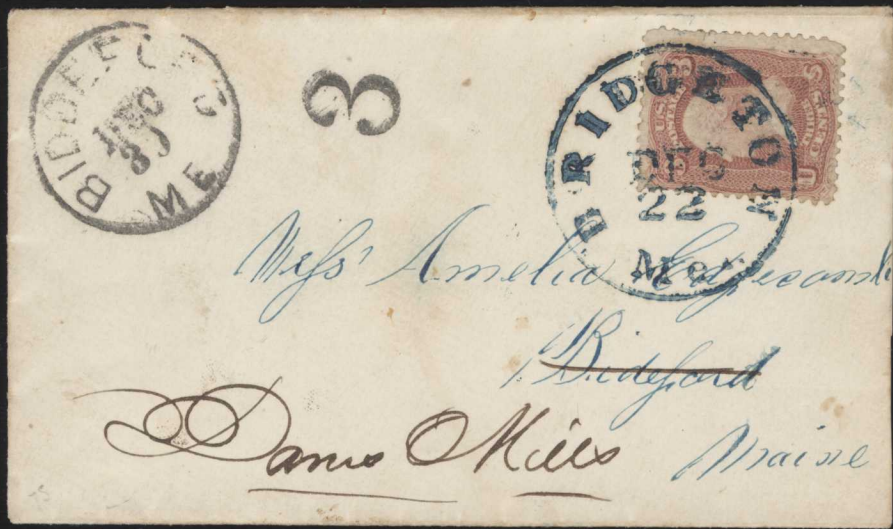 BIDDEFORD
DEC
30
ME
3
BRIDGETON
DEC
22
Me.
Miss Amelia Edgecomb
Bideford
Danes Mills
Maine